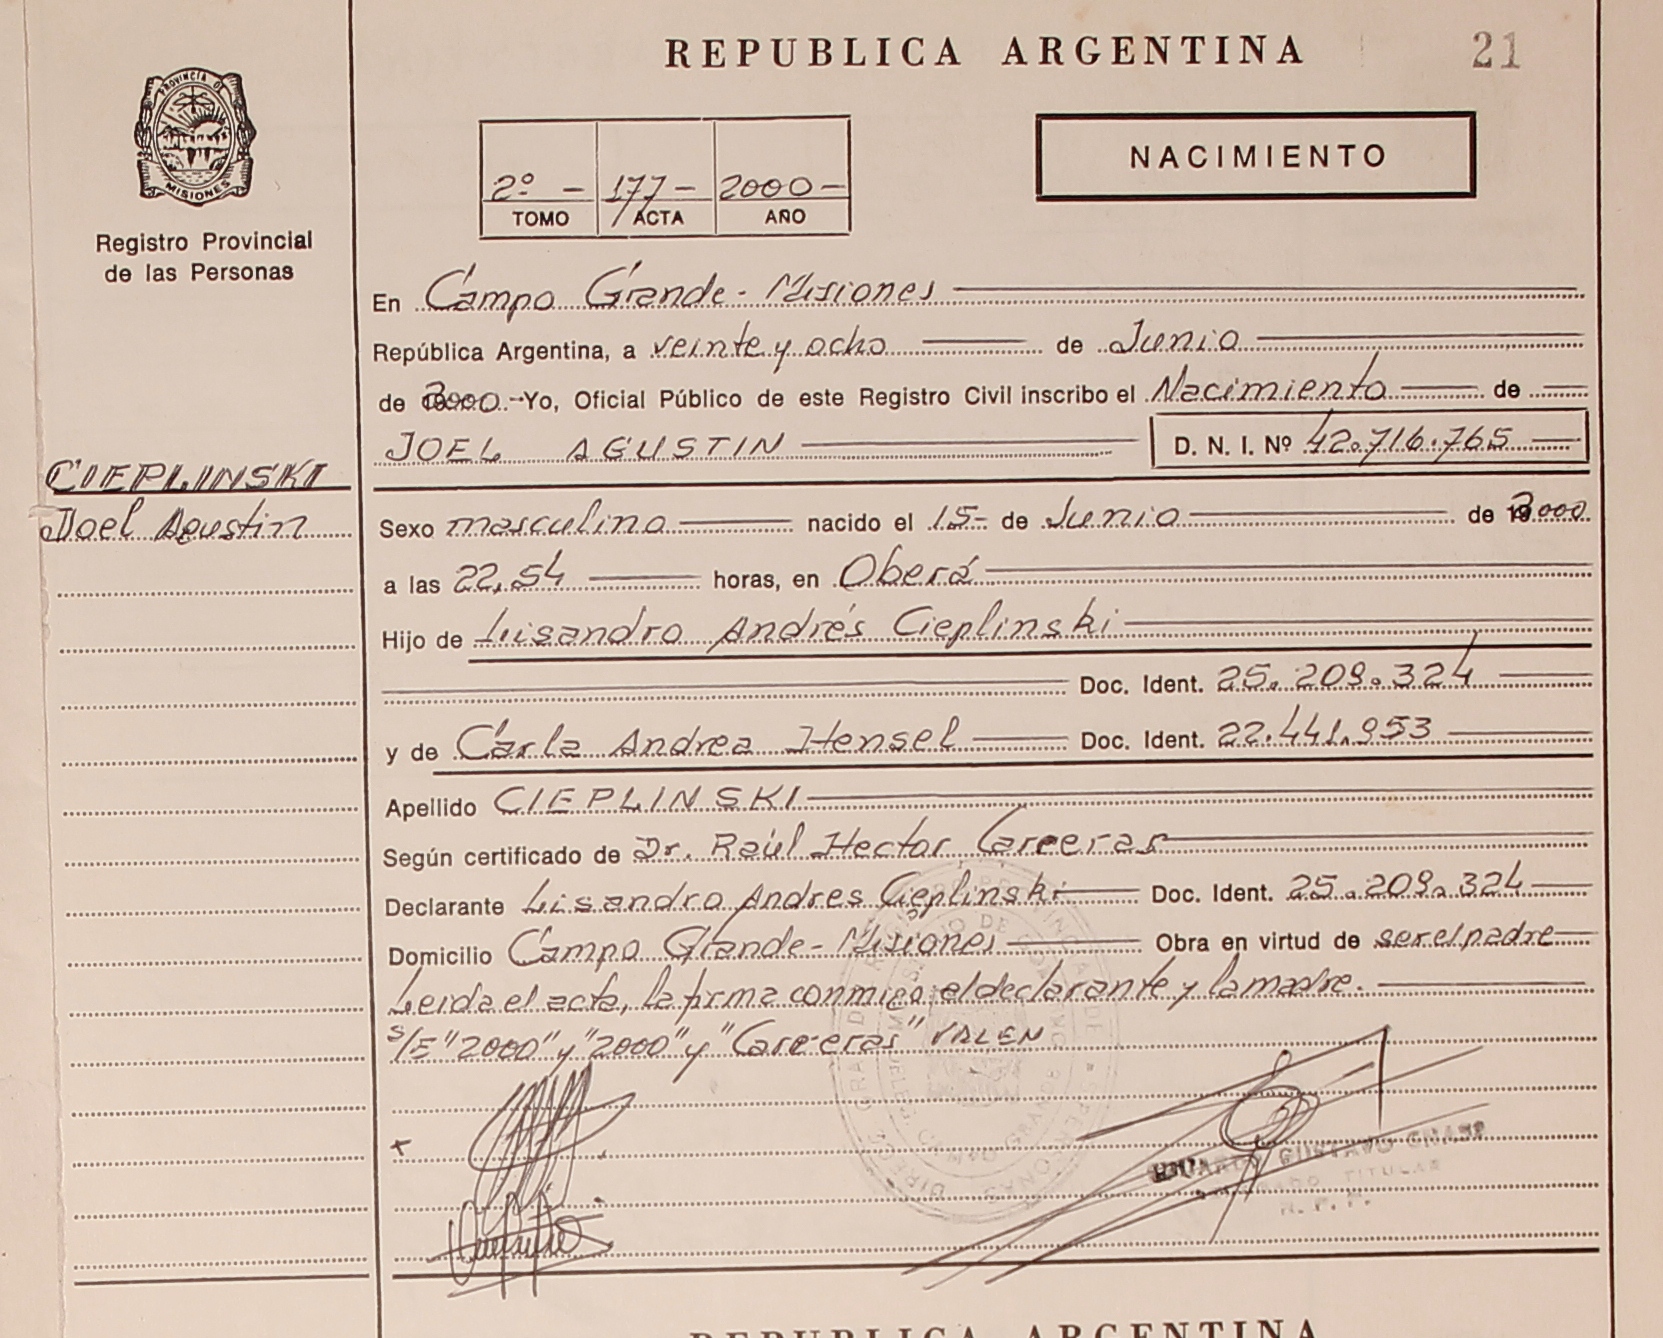 REPUBLICA ARGENTINA
21
PROVINCIA DE
MISIONES
Registro Provincial
de las Personas
2º - 177 - 2000 -
TOMO ACTA AÑO
NACIMIENTO
En Campo Grande - Misiones
República Argentina, a veinte y ocho de Junio
de 2000.- Yo, Oficial Público de este Registro Civil inscribo el Nacimiento de
JOEL AGUSTIN D. N. I. Nº 42.716.765
CIEPLINSKI
Joel Agustin
Sexo masculino nacido el 15- de Junio de 2000
a las 22,54 horas, en Oberá
Hijo de Lisandro Andrés Cieplinski
Doc. Ident. 25.209.324
y de Carla Andrea Hensel Doc. Ident. 22.441.953
Apellido CIEPLINSKI
Según certificado de Dr. Raúl Hector Carreras
Declarante Lisandro Andres Cieplinski Doc. Ident. 25.209.324
Domicilio Campo Grande - Misiones Obra en virtud de ser el padre
Leida el acta, la firma conmigo el declarante y la madre.
S/E "2000" y "2000" y "Carreras" VALEN
GUSTAVO
TITULAR
R. P. P.
REPUBLICA ARGENTINA